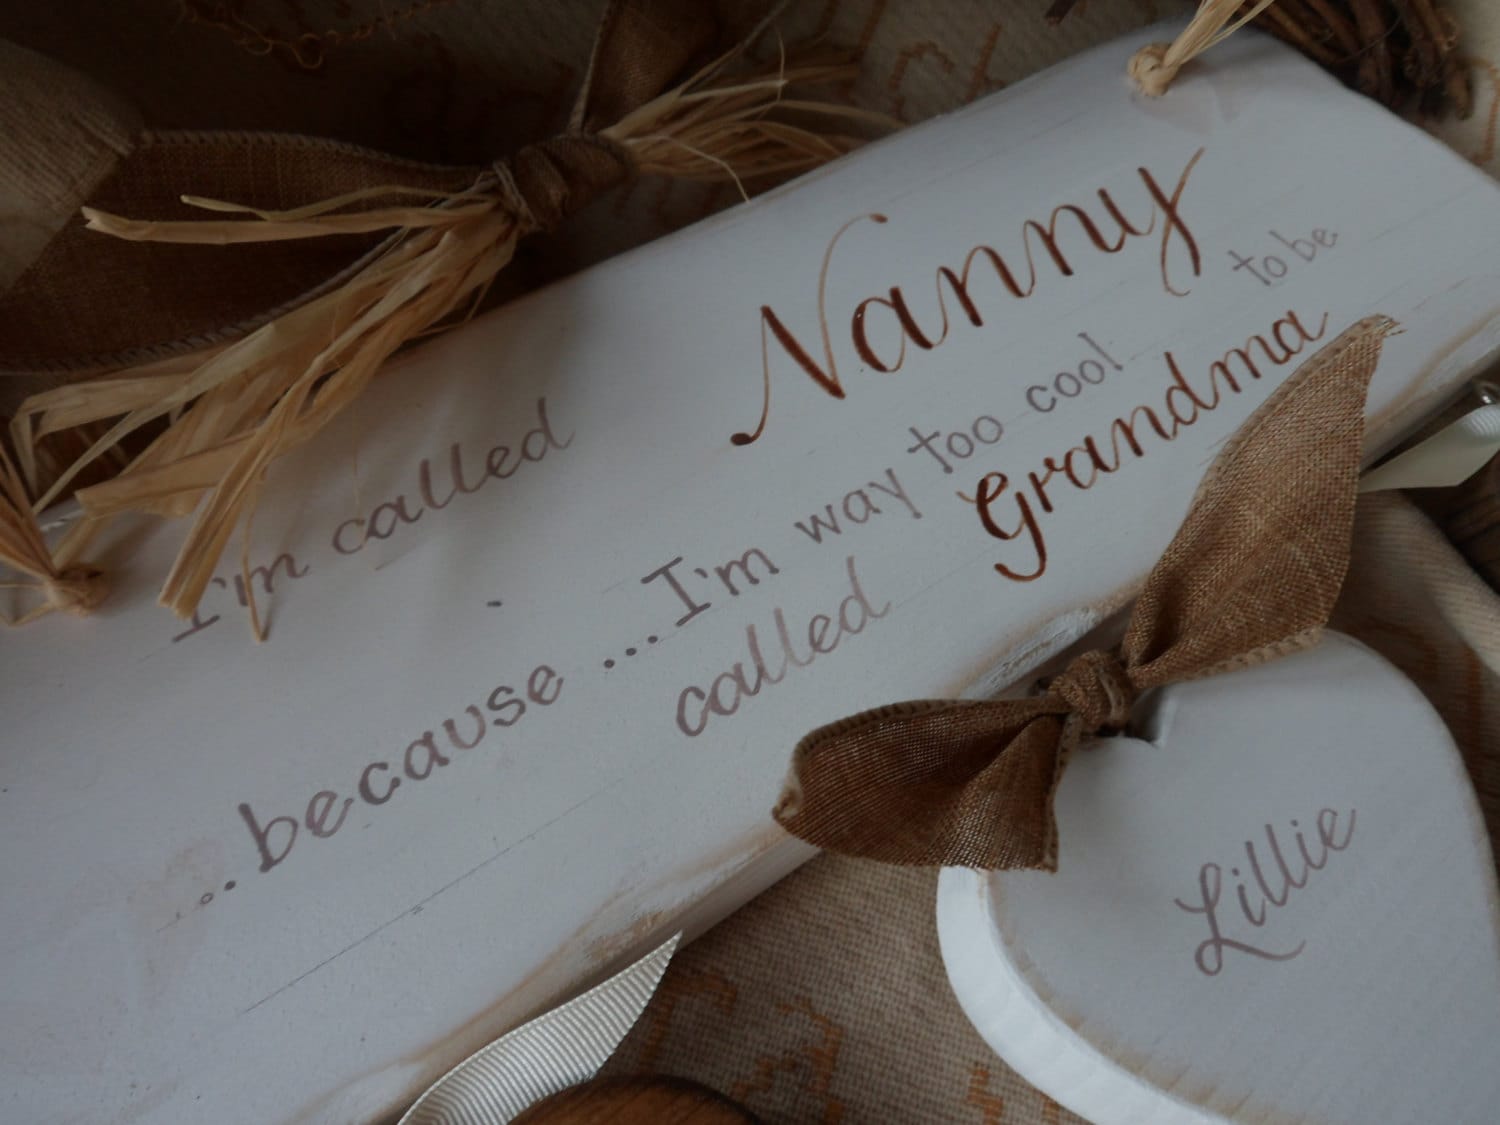 I'm called Nanny
...because ...I'm way too cool to be
called Grandma
Lillie